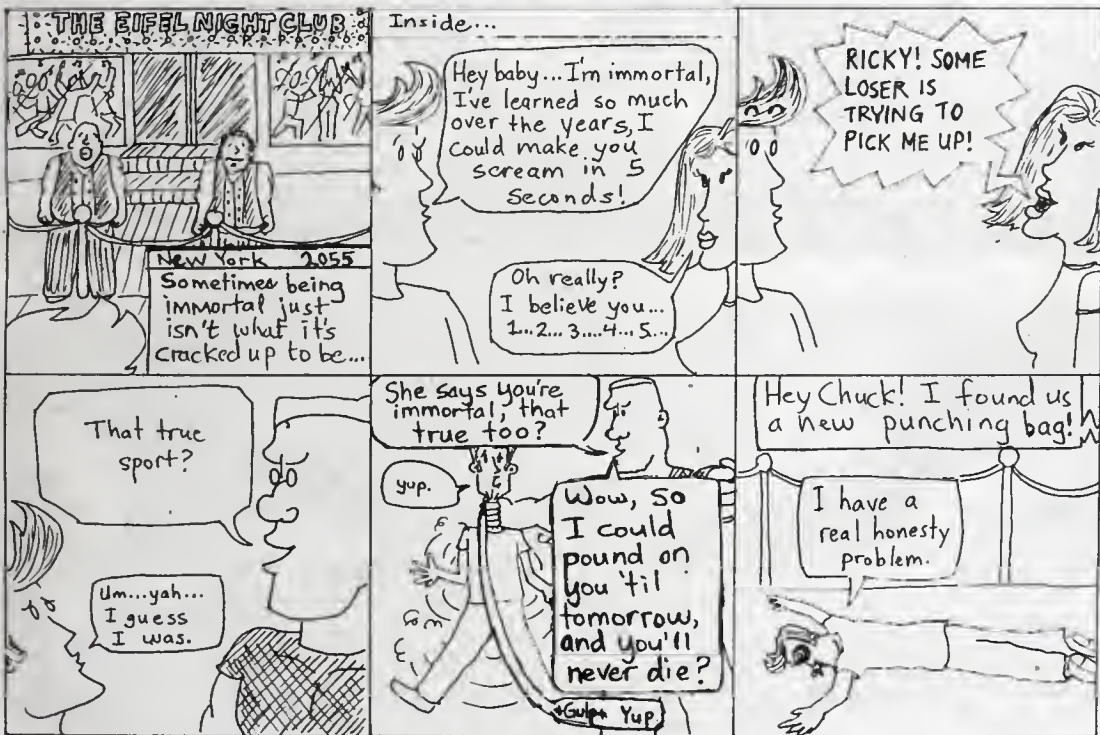 THE EIFEL NIGHT CLUB
New York 2055
Sometimes being
immortal just
isn't what it's
cracked up to be...
Inside...
Hey baby...I'm immortal,
I've learned so much
over the years, I
could make you
scream in 5
seconds!
Oh really?
I believe you...
1...2...3....4...5...
RICKY! SOME
LOSER IS
TRYING TO
PICK ME UP!
That true
sport?
Um...yah...
I guess
I was.
She says you're
immortal, that
true too?
yup.
Wow, so
I could
pound on
you 'til
tomorrow,
and you'll
never die?
*Gulp* Yup
Hey Chuck! I found us
a new punching bag!
I have a
real honesty
problem.